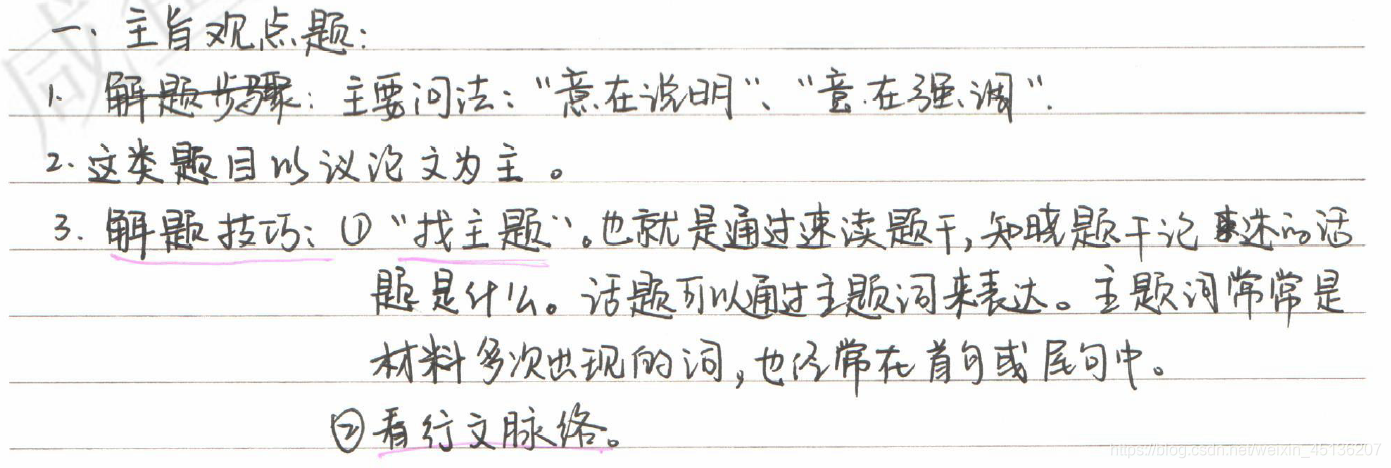 一、主旨观点题:
1. 解题步骤: 主要问法:“意在说明”、“意在强调”.
2. 这类题目以议论文为主。
3. 解题技巧: ①“找主题”。也就是通过速读题干,知晓题干论述的话
题是什么。话题可以通过主题词来表达。主题词常常是
材料多次出现的词,也经常在首句或尾句中。
②看行文脉络。
https://blog.csdn.net/weixin_45136207